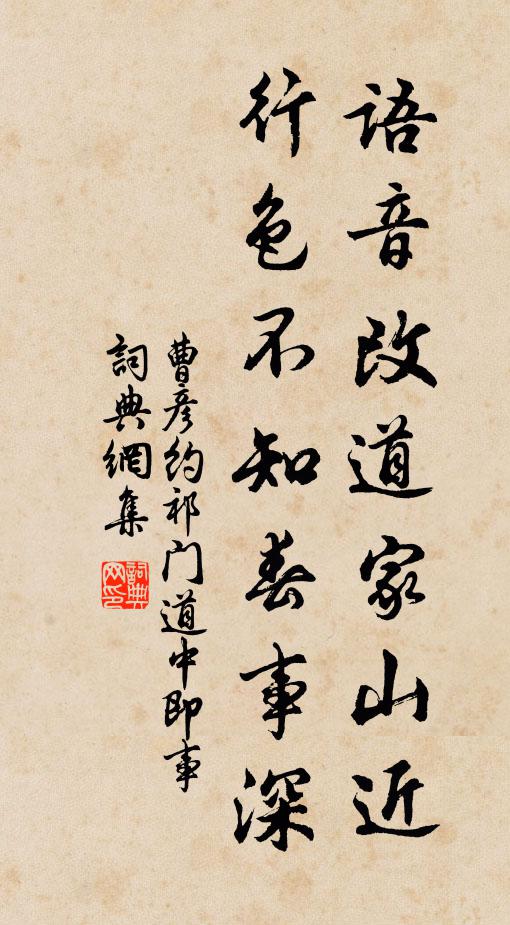 語音改道家山近
行色不知春事深
曹彦约祁门道中即事
詞典網集
詞典网印